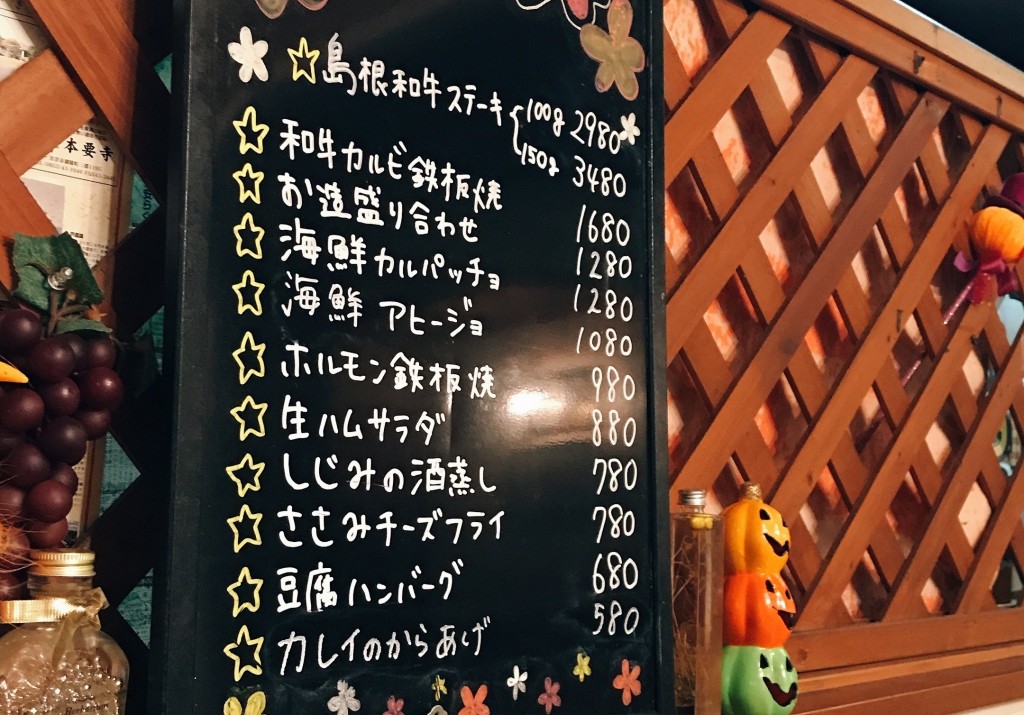 本要寺
島根和牛ステーキ 100g 2980
150g 3480
和牛カルビ鉄板焼 1680
お造盛り合わせ 1280
海鮮カルパッチョ 1280
海鮮アヒージョ 1080
ホルモン鉄板焼 980
生ハムサラダ 880
しじみの酒蒸し 780
ささみチーズフライ 780
豆腐ハンバーグ 680
カレイのからあげ 580